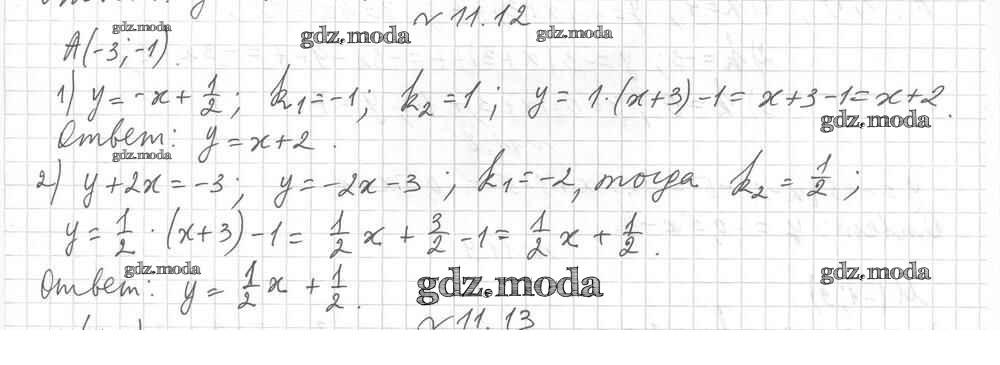 № 11.12
gdz.moda gdz.moda gdz.moda
A(-3; -1).
1) y = -x + 1/2; k₁ = -1; k₂ = 1; y = 1·(x+3) -1 = x+3-1 = x+2.
gdz.moda
Ответ: y = x+2.
gdz.moda
2) y + 2x = -3; y = -2x - 3; k₁ = -2, тогда k₂ = 1/2;
y = 1/2 · (x+3) - 1 = 1/2 x + 3/2 - 1 = 1/2 x + 1/2.
gdz.moda gdz.moda gdz.moda
Ответ: y = 1/2 x + 1/2.
№ 11.13